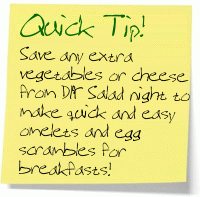 Quick Tip!
Save any extra
vegetables or cheese
from DIY Salad night to
make quick and easy
omelets and egg
scrambles for
breakfasts!